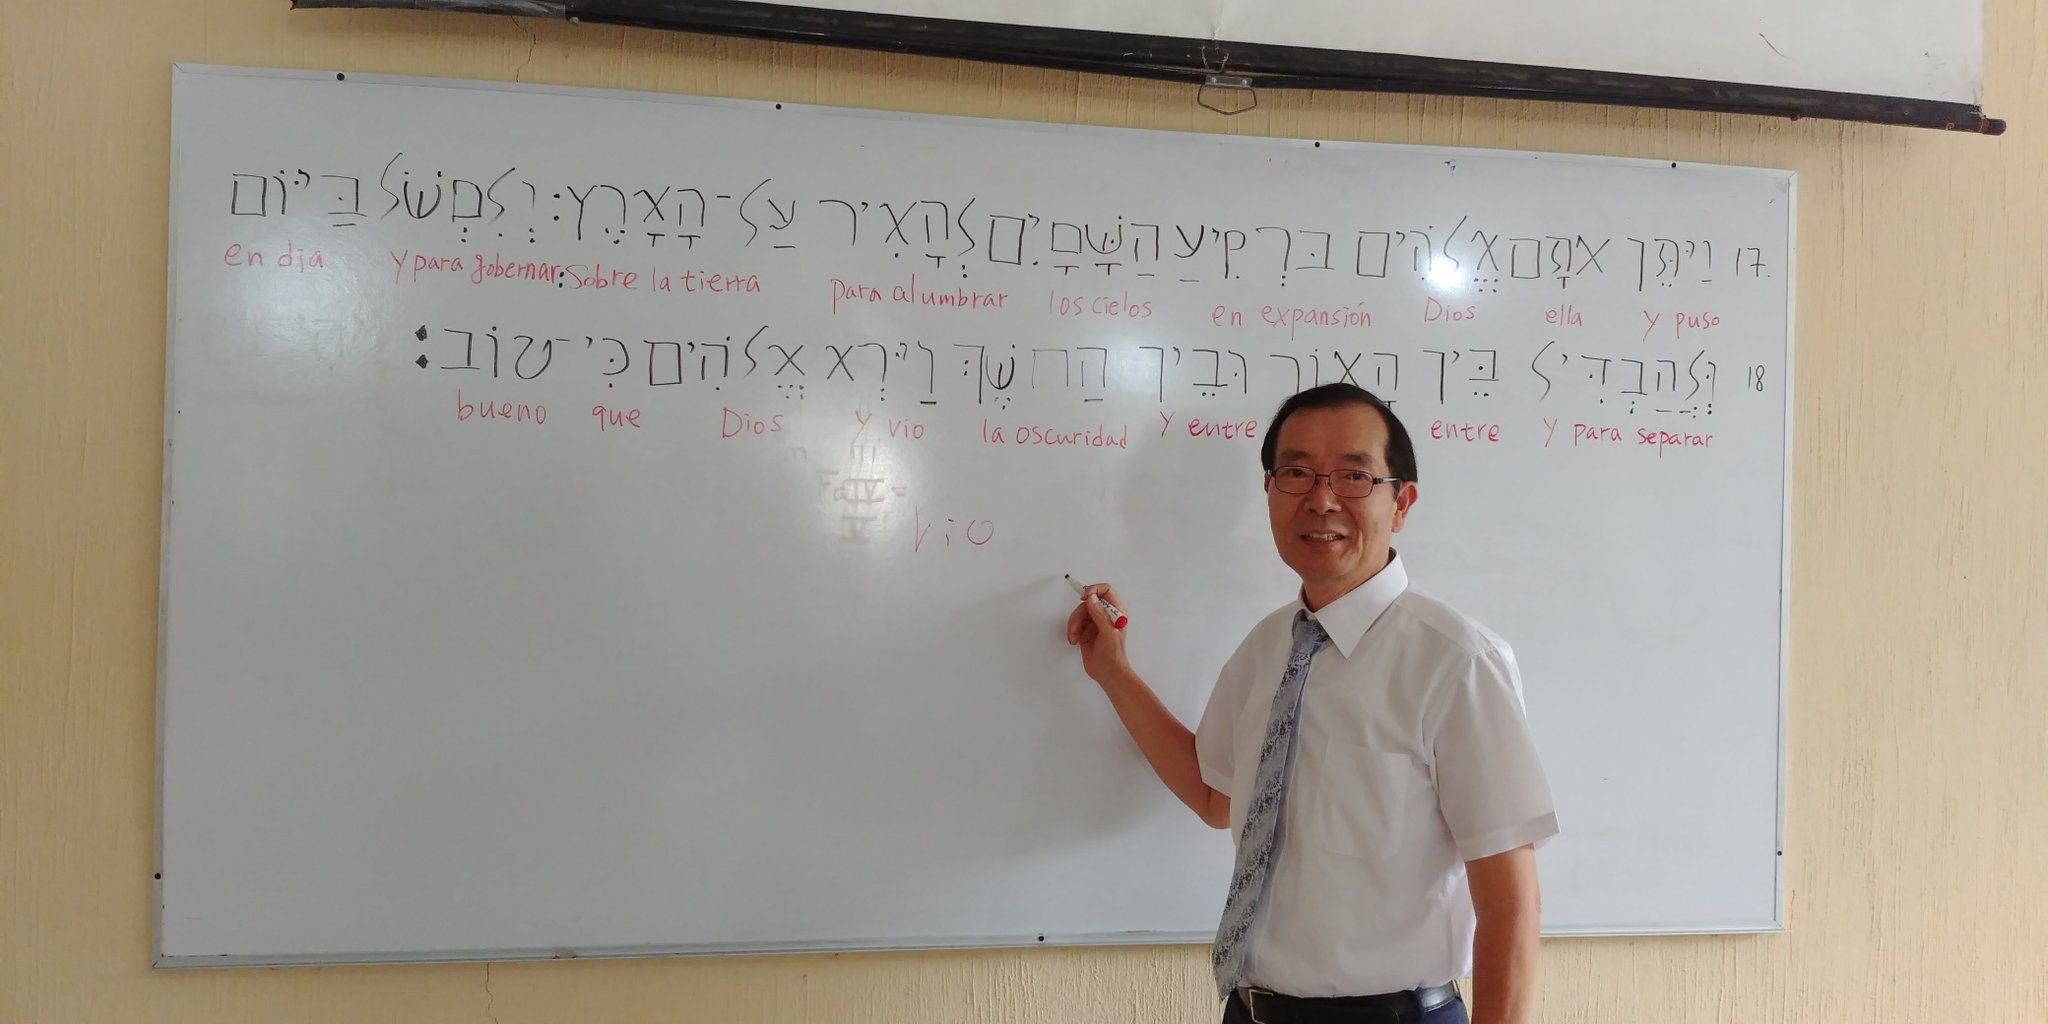 17. וַיִּתֵּן אֹתָם אֱלֹהִים בִּרְקִיעַ הַשָּׁמָיִם לְהָאִיר עַל־הָאָרֶץ: וְלִמְשֹׁל בַּיּוֹם
y puso ella Dios en expansión los cielos para alumbrar sobre la tierra: y para gobernar en dia
18 וּלֲהַבְדִּיל בֵּין הָאוֹר וּבֵין הַחֹשֶׁךְ וַיַּרְא אֱלֹהִים כִּי־טוֹב:
y para separar entre y entre la oscuridad y vio Dios que bueno
vio